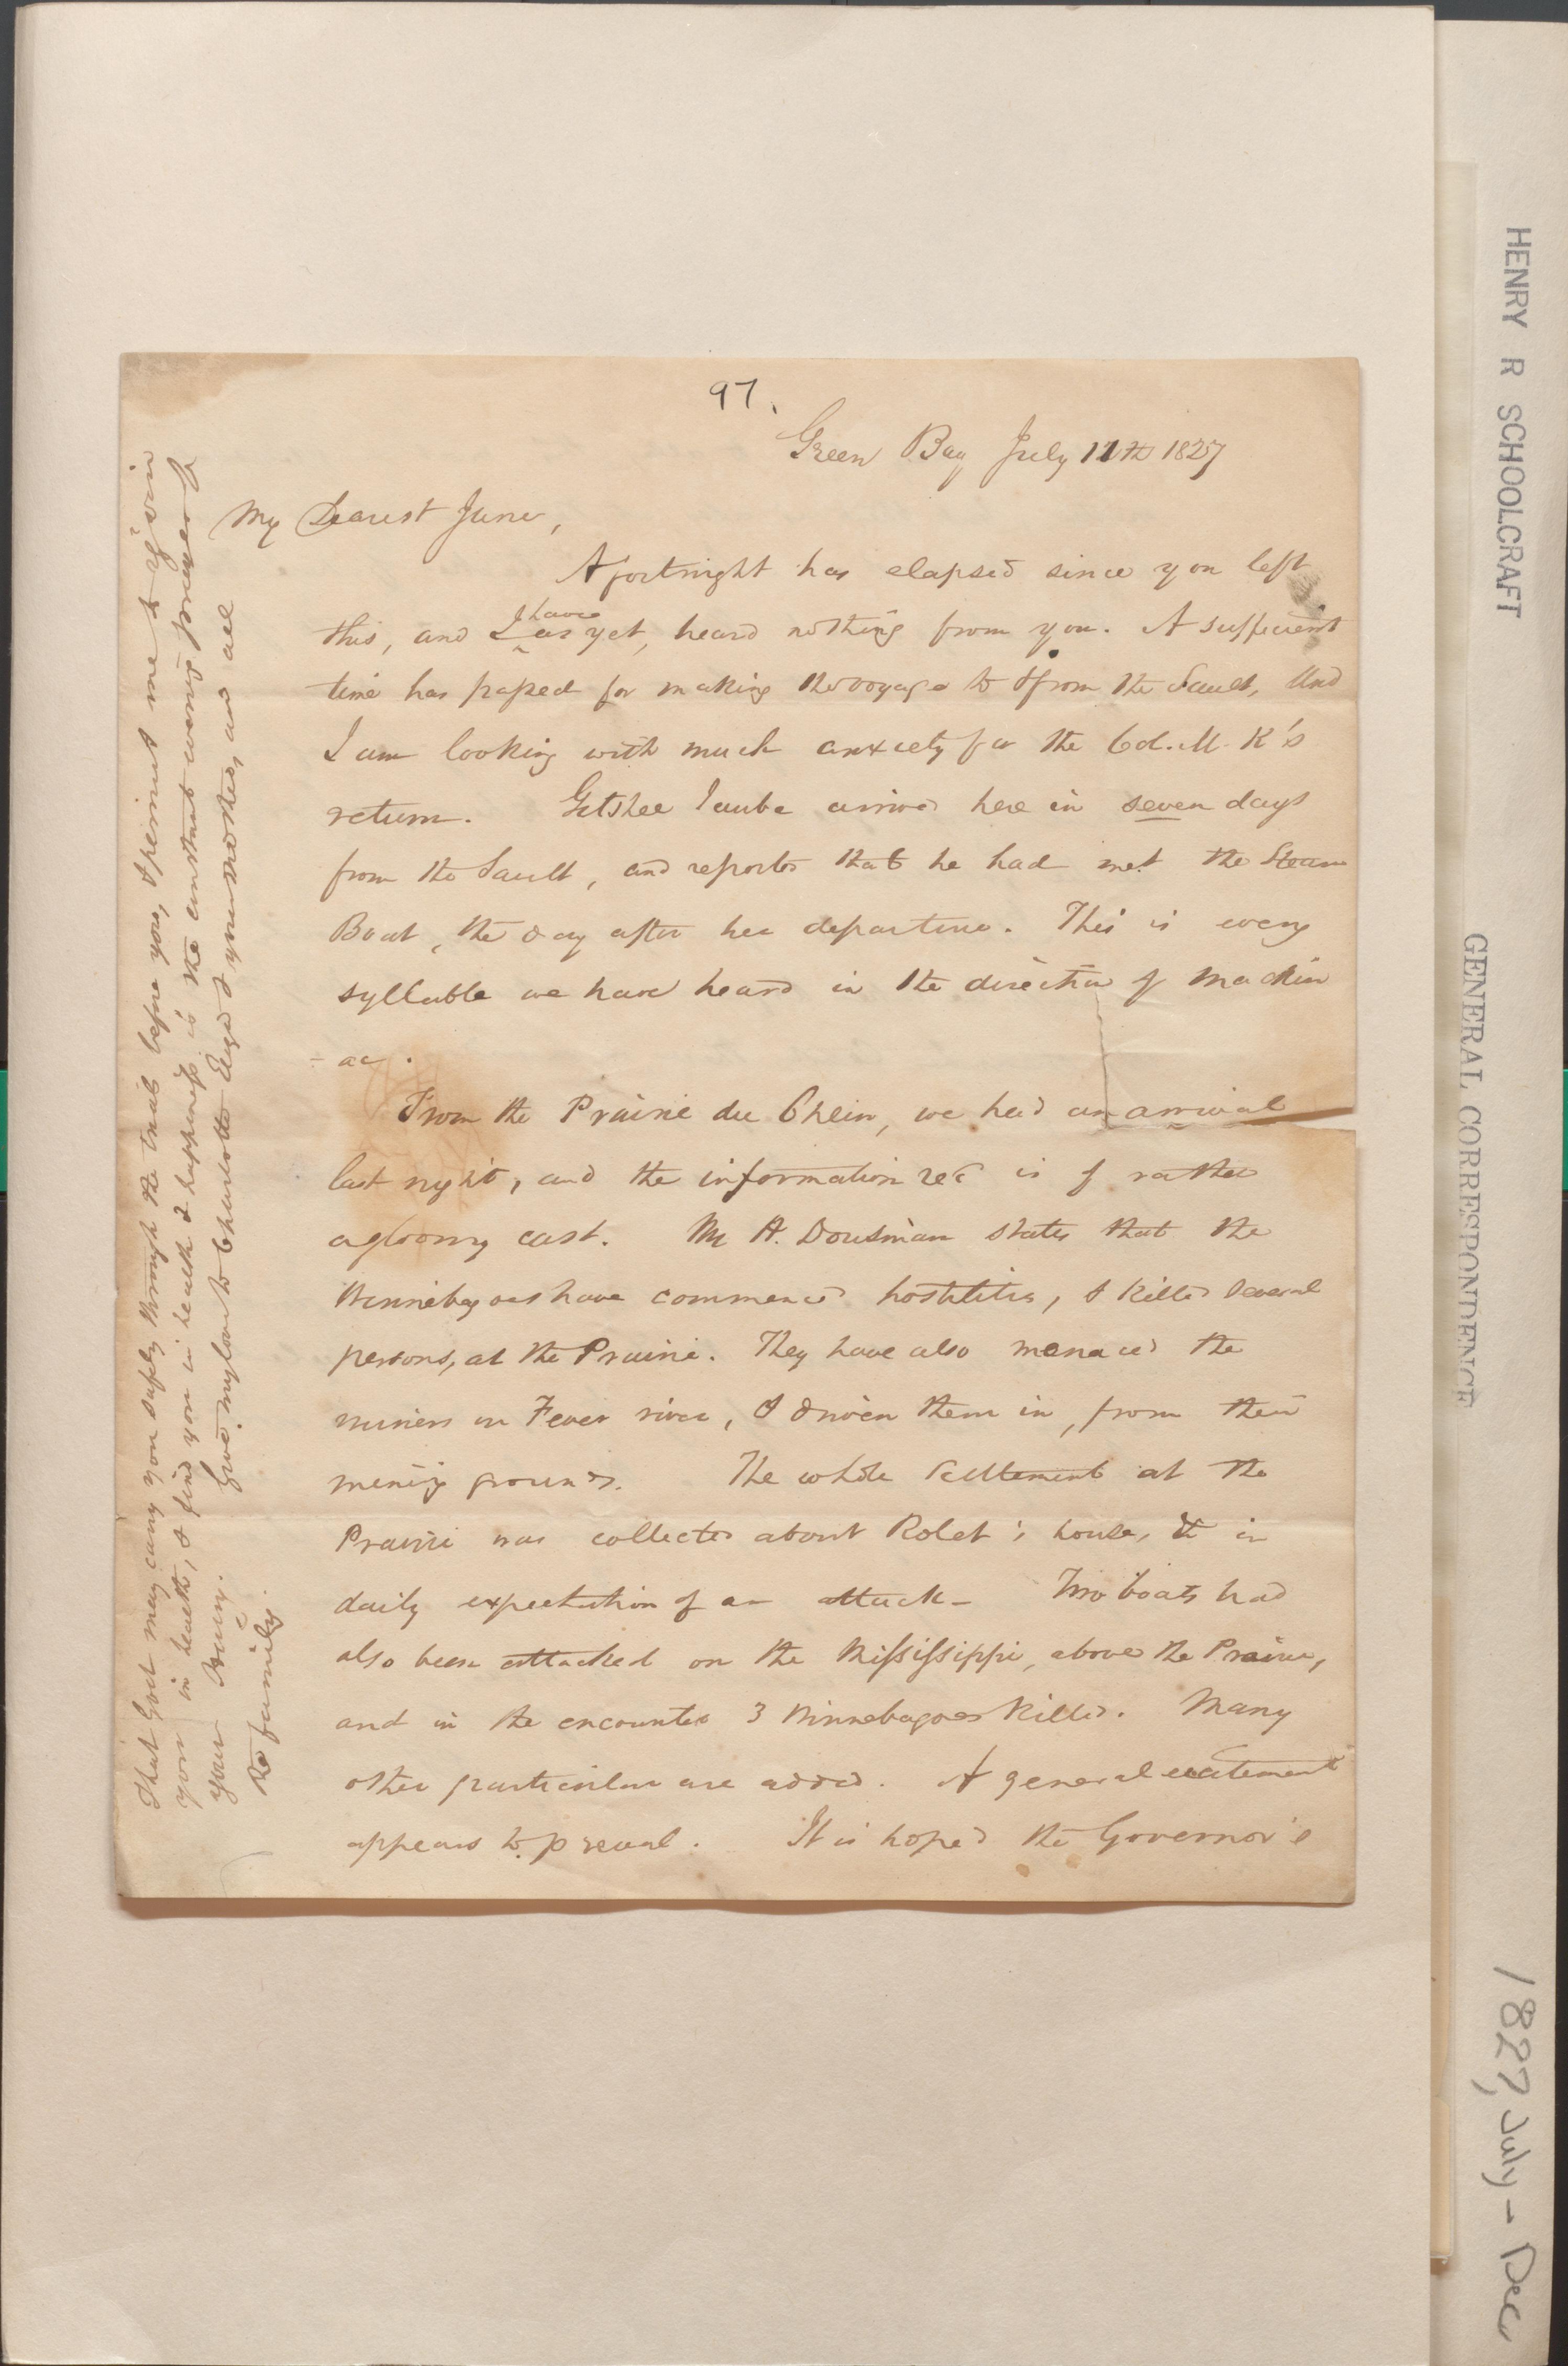 97.
Green Bay July 11th 1827
My Dearest Jane,
A fortnight has elapsed since you left
this, and I have as yet, heard nothing from you. A sufficient
time has passed for making the voyage to & from the Sault, And
I am looking with much anxiety for the Col. M. K's
return. Getshee Jauba arrived here in seven days
from the Sault, and reported that he had met the Steam
Boat, the day after her departure. This is every
syllable we have heard in the direction of Mackin
-ac.
From the Prairie du Chein, we had an arrival
last night, and the information recd is of rather
a gloomy cast. Mr H. Dousman states that the
Winnebagoes have commenced hostilities, & killed several
persons, at the Prairie. They have also menaced the
miners on Fever river, & driven them in, from their
mining grounds. The whole settlement at the
Prairie was collected about Rolet's house, & in
daily expectation of an attack - Two boats had
also been attacked on the Mississippi, above the Prairie,
and in the encounter 3 Winnebagoes killed. Many
other particulars are added. A general excitement
appears to prevail. It is hoped the Governor's
That God may carry you safely through the trial before you, & permit me to rejoin
you in health, & find you in health & happiness is the constant evening prayer of
your Henry. Give my love to Charlotte Eliza & your mother, and all
the family.
HENRY R SCHOOLCRAFT
GENERAL CORRESPONDENCE
1827, July - Dec